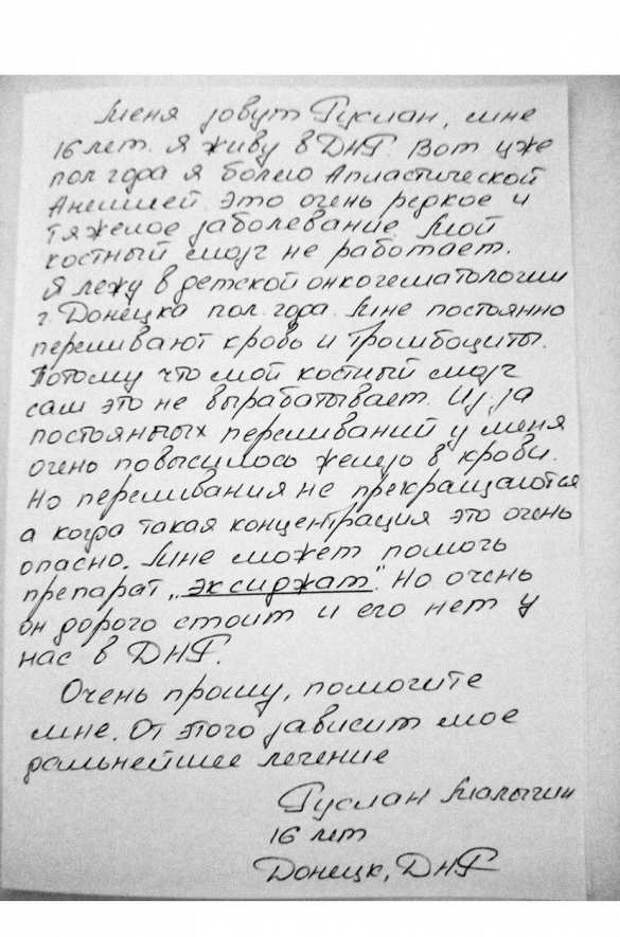 Меня зовут Руслан, мне
16 лет. Я живу в ДНР. Вот уже
пол года я болею Апластической
Анемией. Это очень редкое и
тяжелое заболевание. Мой
костный мозг не работает.
Я лежу в детской онкогематологии
г. Донецка пол года. Мне постоянно
переливают кровь и тромбоциты.
Потому что мой костный мозг
сам это не вырабатывает. Из за
постоянных переливаний у меня
очень повысилось железо в крови.
Но переливания не прекращаются
а когда такая концентрация это очень
опасно. Мне может помочь
препарат "эксиджат". Но очень
он дорого стоит и его нет у
нас в ДНР.
Очень прошу, помогите
мне. От этого зависит мое
дальнейшее лечение
Руслан Малыгин
16 лет
Донецк, ДНР